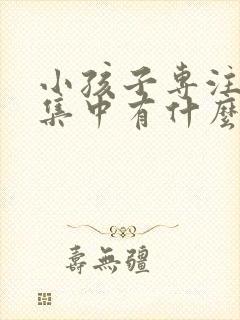 小孩子専注
集中有什麼
壽無疆